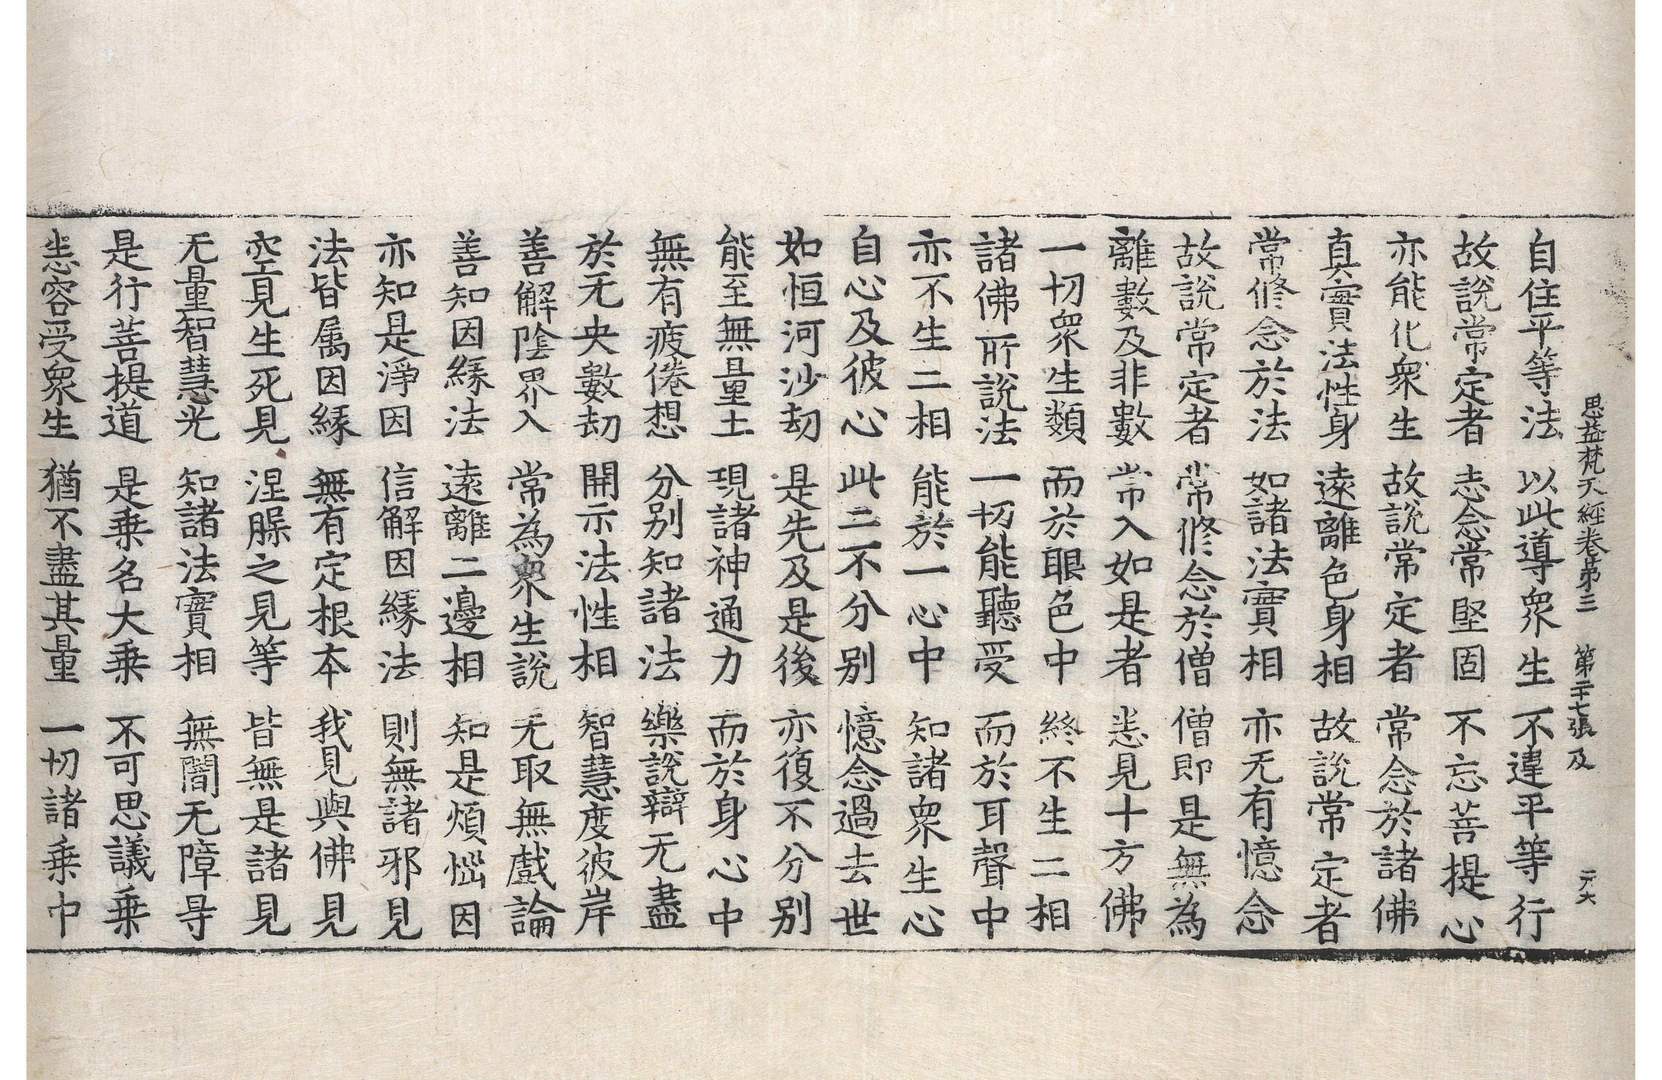 思益梵天經卷第三 第二十七張 及
自住平等法 以此導衆生 不違平等行
故說常定者 志念常堅固 不忘菩提心
亦能化衆生 故說常定者 常念於諸佛
真實法性身 遠離色身相 故說常定者
常修念於法 如諸法實相 亦无有憶念
故說常定者 常修念於僧 僧即是無為
離數及非數 常入如是者 悉見十方佛
一切衆生類 而於眼色中 終不生二相
諸佛所說法 一切能聽受 而於耳聲中
亦不生二相 能於一心中 知諸衆生心
自心及彼心 此二不分別 憶念過去世
如恒河沙劫 是先及是後 亦復不分別
能至無量土 現諸神通力 而於身心中
無有疲倦想 分別知諸法 樂說辯无盡
於无央數劫 開示法性相 智慧度彼岸
善解陰界入 常為衆生說 无取無戲論
善知因緣法 遠離二邊相 知是煩惱因
亦知是淨因 信解因緣法 則無諸邪見
法皆属因緣 無有定根本 我見與佛見
空見生死見 涅槃之見等 皆無是諸見
无量智慧光 知諸法實相 無闇无障㝵
是行菩提道 是乗名大乗 不可思議乗
悉容受衆生 猶不盡其量 一切諸乗中